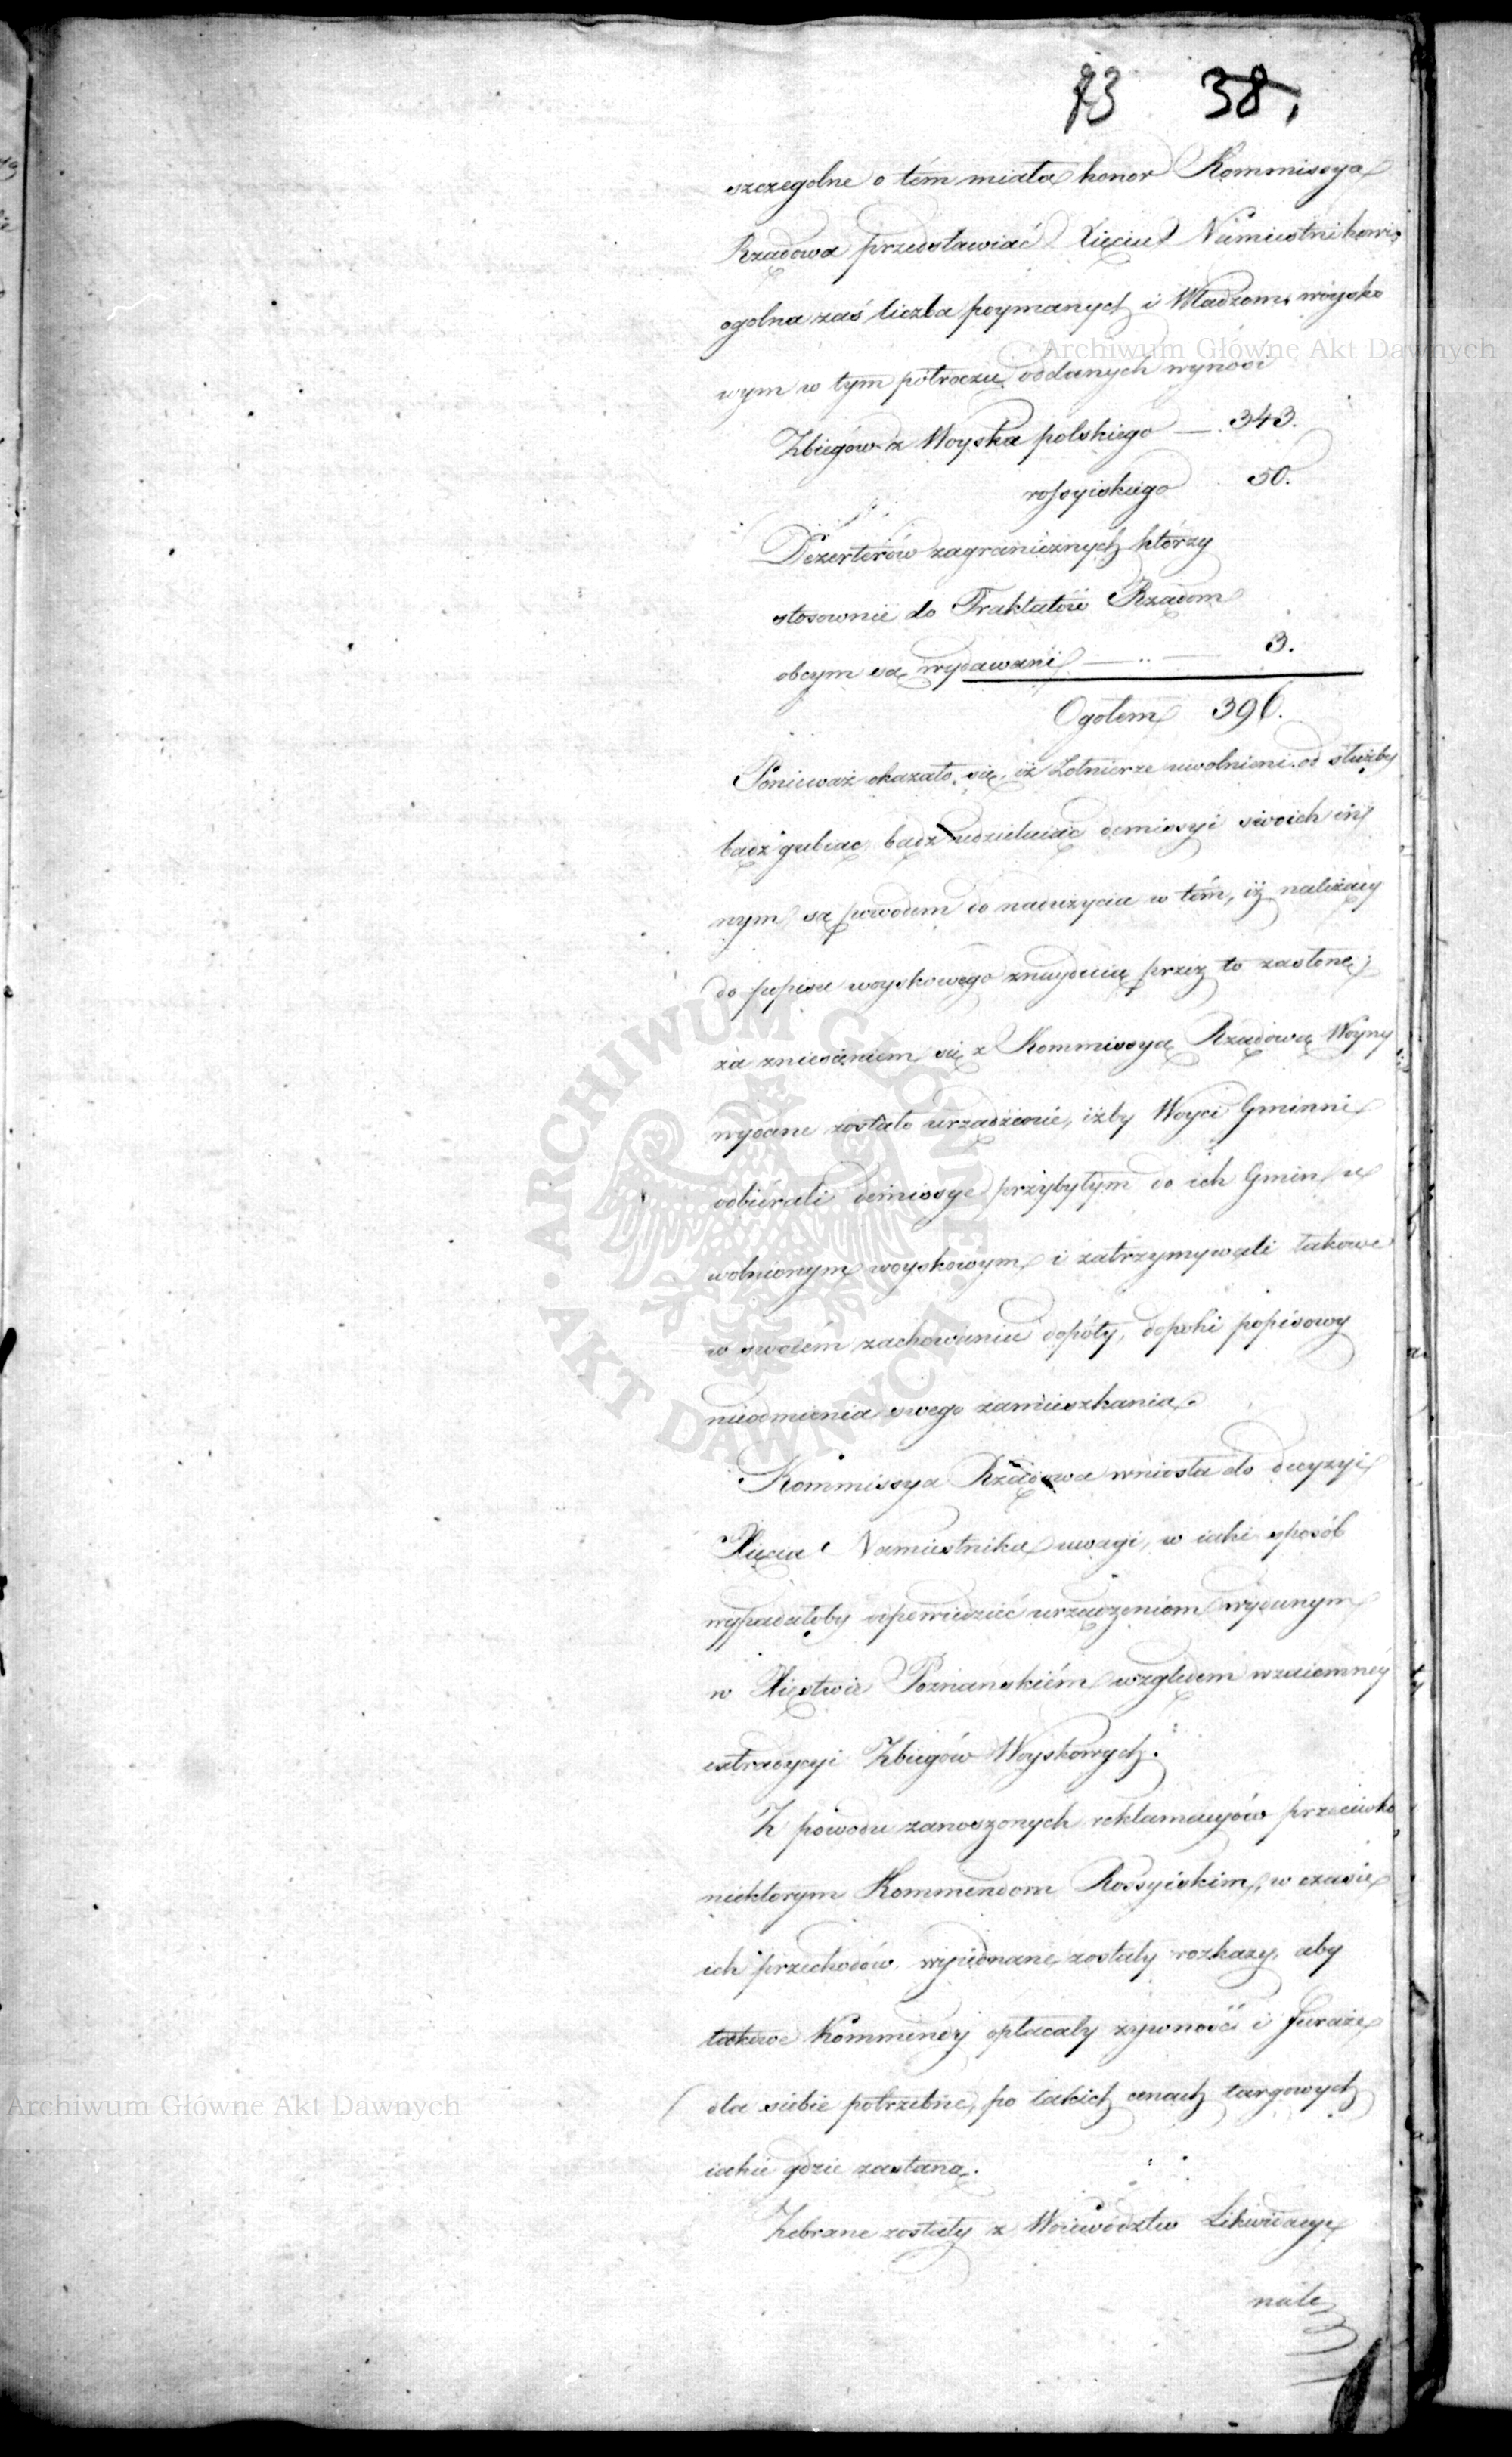 73 38,
szczegolne o tém miała honor Kommissya
Rządowa przedstawiać Xięciu Namiestnikowi,
ogolna zaś liczba poymanych i Władzom woysko
wym w tym półroczu oddanych wynosi
Zbiegów z Woyska polskiego — 343.
rossyiskiego 50.
Dezerterów zagranicznych którzy
stosownie do Traktatów Rządom
obcym są wydawani — 3.
Ogołem 396.
Ponieważ okazało się, iż Żołnierze uwolnieni od służby
bądź gubiąc, bądź udzielaiąc demissyi swoich in
nym, są powodem do nadużycia w tém, iż należący
do popisu woyskowego znayduią przez to zasłonę;
za zniesieniem się z Kommissyą Rządową Woyny
wydane zostało urządzenie, iżby Woyci Gminni
odbiérali demissye przybyłym do ich Gmin u
wolnionym woyskowym i zatrzymywali takowe
w swoiém zachowaniu dopóty, dopoki popisowy
nieodmienia swego zamieszkania.
Kommissya Rządowa wniosła do decyzyi
Xięcia Namiestnika uwagi, w iaki sposób
wypadałoby odpowiedzieć urządzeniom wydanym
w Xięstwie Poznańskiém względem wzaiemnéy
extradycyi Zbiegów Woyskowych.
Z powodu zanoszonych reklamacyów przeciwko
niektorym Kommendom Rossyiskim, w czasie
ich przechodów, wyiednane zostały rozkazy, aby
takowe Kommendy opłacały żywność i furaże
dla siebie potrzebne, po takich cenach targowych
iakie gdzie zastaną.
Zebrane zostały z Woiewództw Likwidacye
nale
Archiwum Główne Akt Dawnych
ARCHIWUM GŁÓWNE AKT DAWNYCH
Archiwum Główne Akt Dawnych